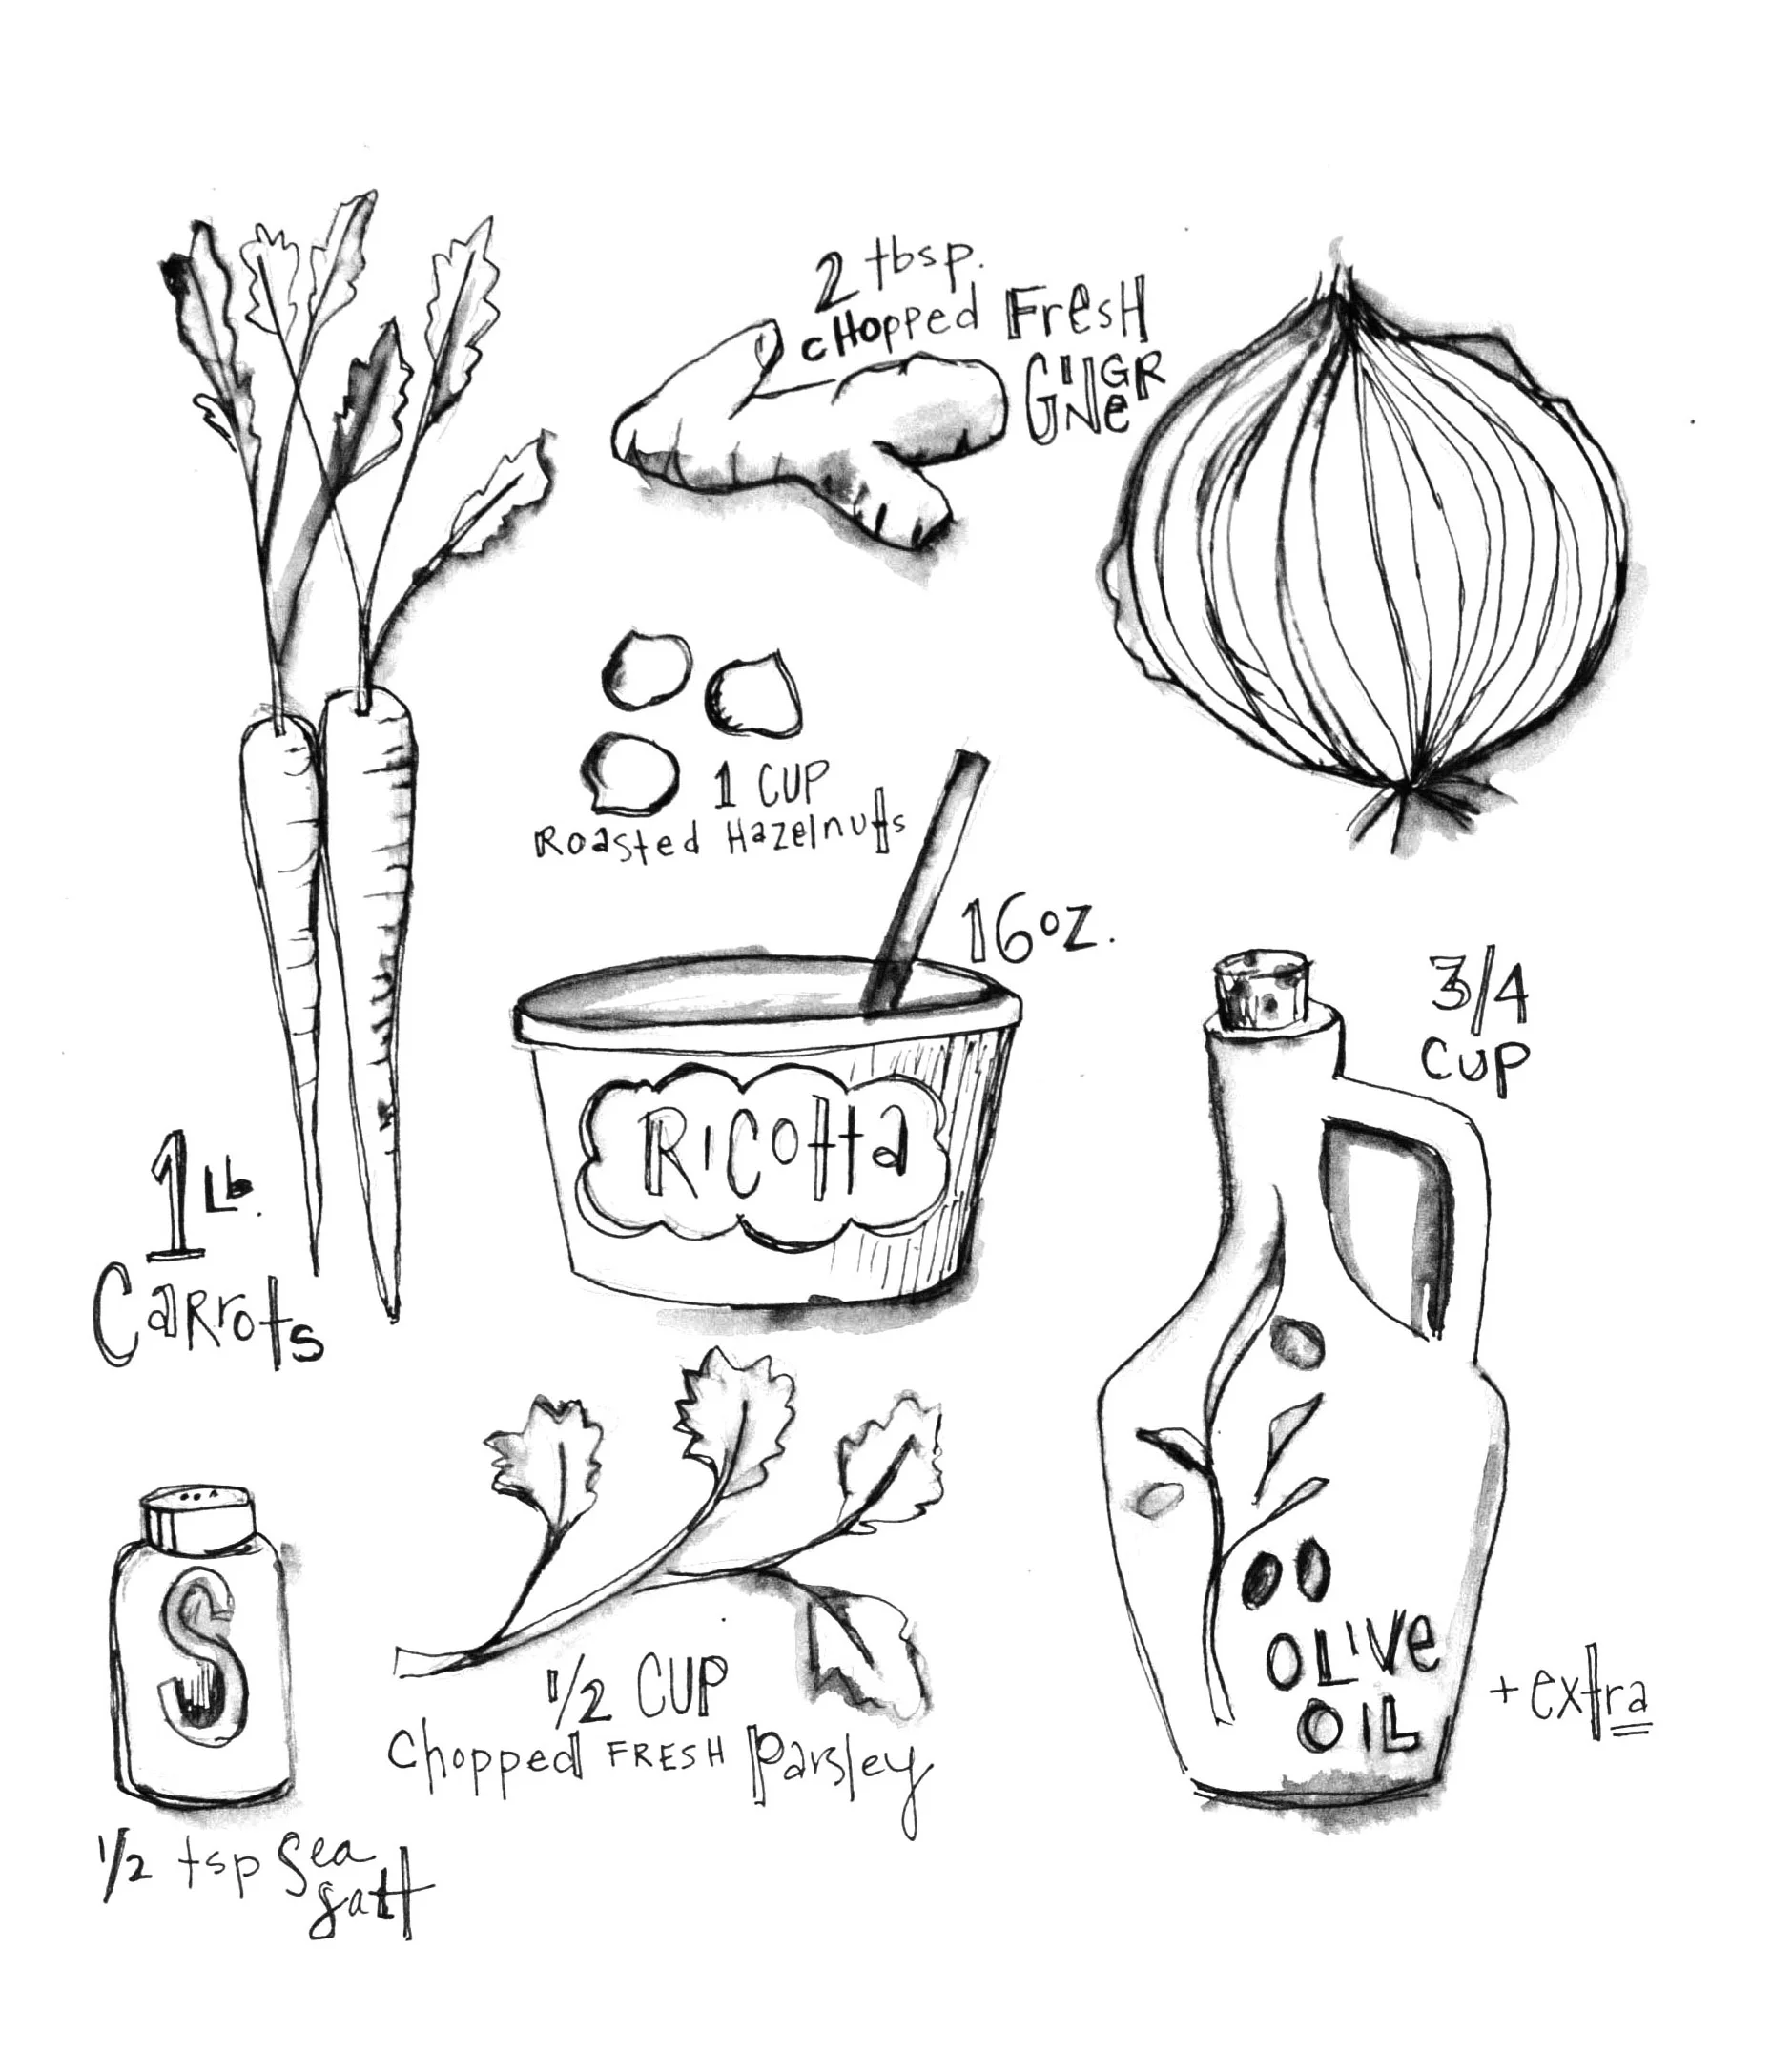 2 tbsp.
cHopped FresH
GiNGeR
1 CUP
Roasted Hazelnuts
16 oz.
RiCotta
3/4
CUP
1 Lb.
CaRRots
OLiVe
OIL
+ extra
S
1/2 CUP
Chopped FRESH Parsley
1/2 tsp Sea
salt